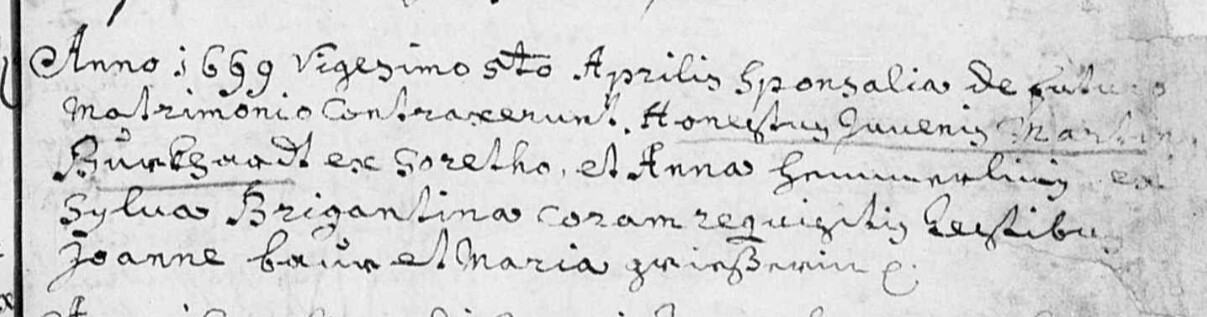 Anno 1699 Vigesimo 5to Aprilis Sponsalia de futuro
Matrimonio Contraxerunt. Honestus Juvenis Martin,
Burkhardt ex Soretho, et Anna Hemmerlinin ex
Sylva Brigantina coram requisitis testibus
Joanne baur et Maria